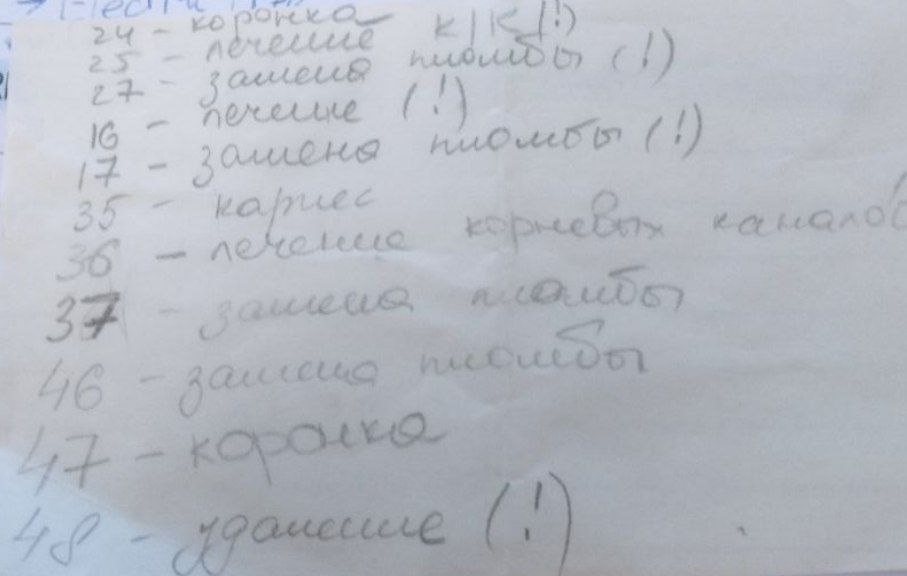 24 - коронка
25 - лечение к/к (!)
27 - замена пломбы (!)
16 - лечение (!)
17 - замена пломбы (!)
35 - кариес
36 - лечение корневых каналов
37 - замена пломбы
46 - замена пломбы
47 - коронка
48 - удаление (!)